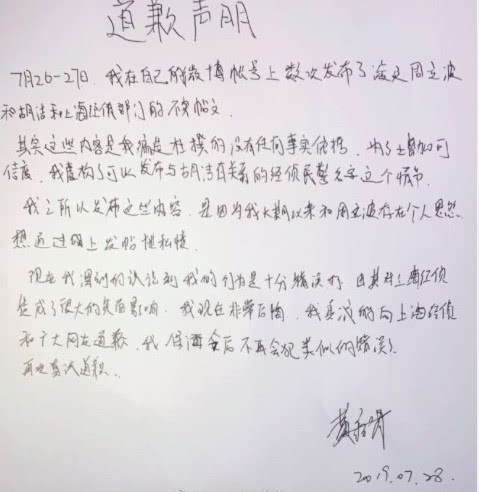 道歉声明
7月26-27日,我在自己的微博帐号上数次发布了涉及周立波
和胡洁和上海经侦部门的不实帖文.
其实这些内容是我编造杜撰的没有任何事实依据,为了增加可
信度,我虚构了可以发布与胡洁有关系的经侦民警名字这个情节.
我之所以发布这些内容,是因为我长期以来和周立波存在个人恩怨.
想通过网上发帖泄私愤
现在我深刻的认识到我的行为是十分错误的,尤其对上海经侦
造成了很大的负面影响.我现在非常后悔,我真诚的向上海经侦
和广大网友道歉,我保证今后不再会犯类似的错误.
再次真诚道歉.
2019.07.28.